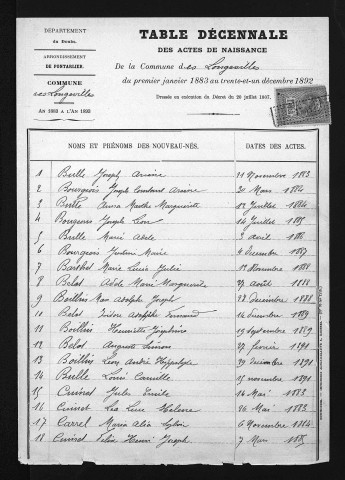 DÉPARTEMENT
du Doubs.
ARRONDISSEMENT
DE PONTARLIER.
COMMUNE
des Longevilles
AN 1883 A L'AN 1892
TABLE DÉCENNALE
DES ACTES DE NAISSANCE
De la Commune des Longevilles
du premier janvier 1883 au trente-et-un décembre 1892
Dressée en exécution du Décret du 20 juillet 1807.
NOMS ET PRÉNOMS DES NOUVEAU-NÉS. DATES DES ACTES.
1 Bulle Joseph 21 Novembre 1883
2 Bourgeois Joseph Constant 31 Mars 1884
3 Bulle Anna Marthe Marguerite 12 Juillet 1884
4 Bourgeois Joseph Léon 14 Juillet 1885
5 Bulle Marie Adèle 3 Août 1886
6 Bourgeois 4 Décembre 1887
7 Barthet Marie Louise Julie 11 Novembre 1888
8 Belot Adèle Marie Marguerite 27 Août 1888
9 Adolphe Joseph 28 Décembre 1888
10 Belot Isidore Adolphe Fernand 16 Décembre 1889
11 Henriette Joséphine 19 Septembre 1889
12 Belot Auguste Simon 27 Février 1891
13 Léon André Hippolyte 29 Décembre 1891
14 Bulle Louis Camille 15 Novembre 1891
15 Cuinet Jules Emile 16 Mai 1883
16 Cuinet Lea Lucie Hélène 26 Mai 1883
17 Carrel Maria Alix 6 Novembre 1884
18 Cuinet Félix Henri Joseph 7 Mars 1885